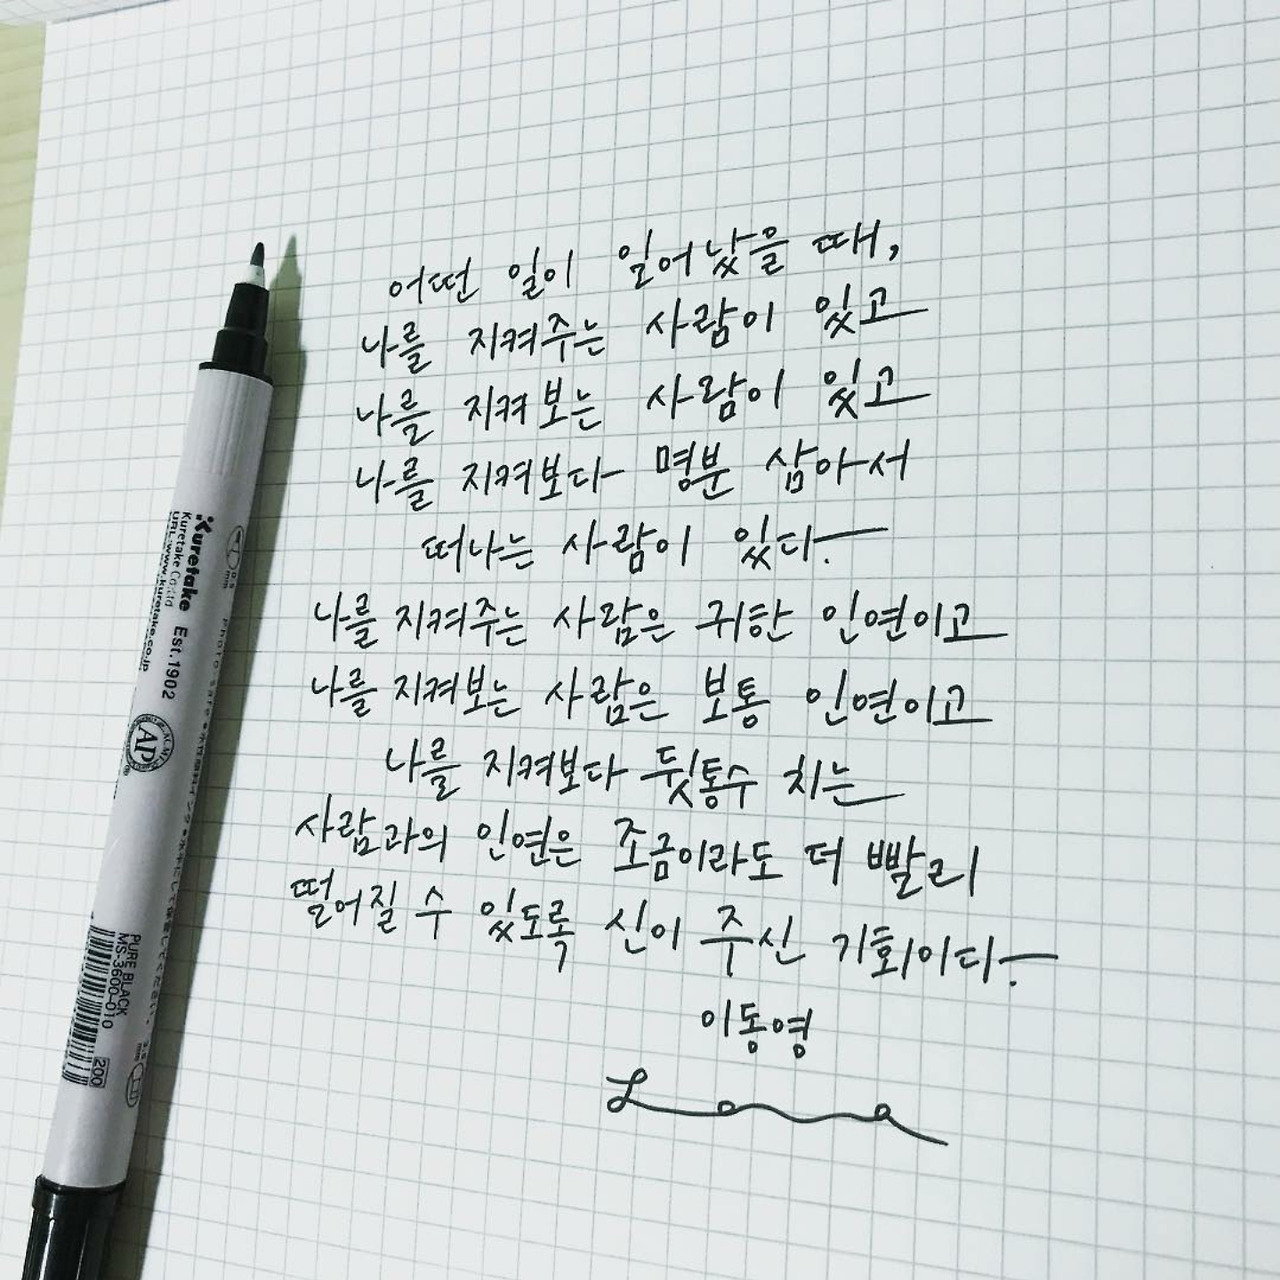 어떤 일이 일어났을 때,
나를 지켜주는 사람이 있고
나를 지켜보는 사람이 있고
나를 지켜보다 명분 삼아서
떠나는 사람이 있다.
나를 지켜주는 사람은 귀한 인연이고
나를 지켜보는 사람은 보통 인연이고
나를 지켜보다 뒷통수 치는
사람과의 인연은 조금이라도 더 빨리
떨어질 수 있도록 신이 주신 기회이다.
이동영
Kuretake Est.1902
Kuretake Co.Ltd
URL:www.kuretake.co.jp
AP
PURE BLACK
MS-3600-010
200